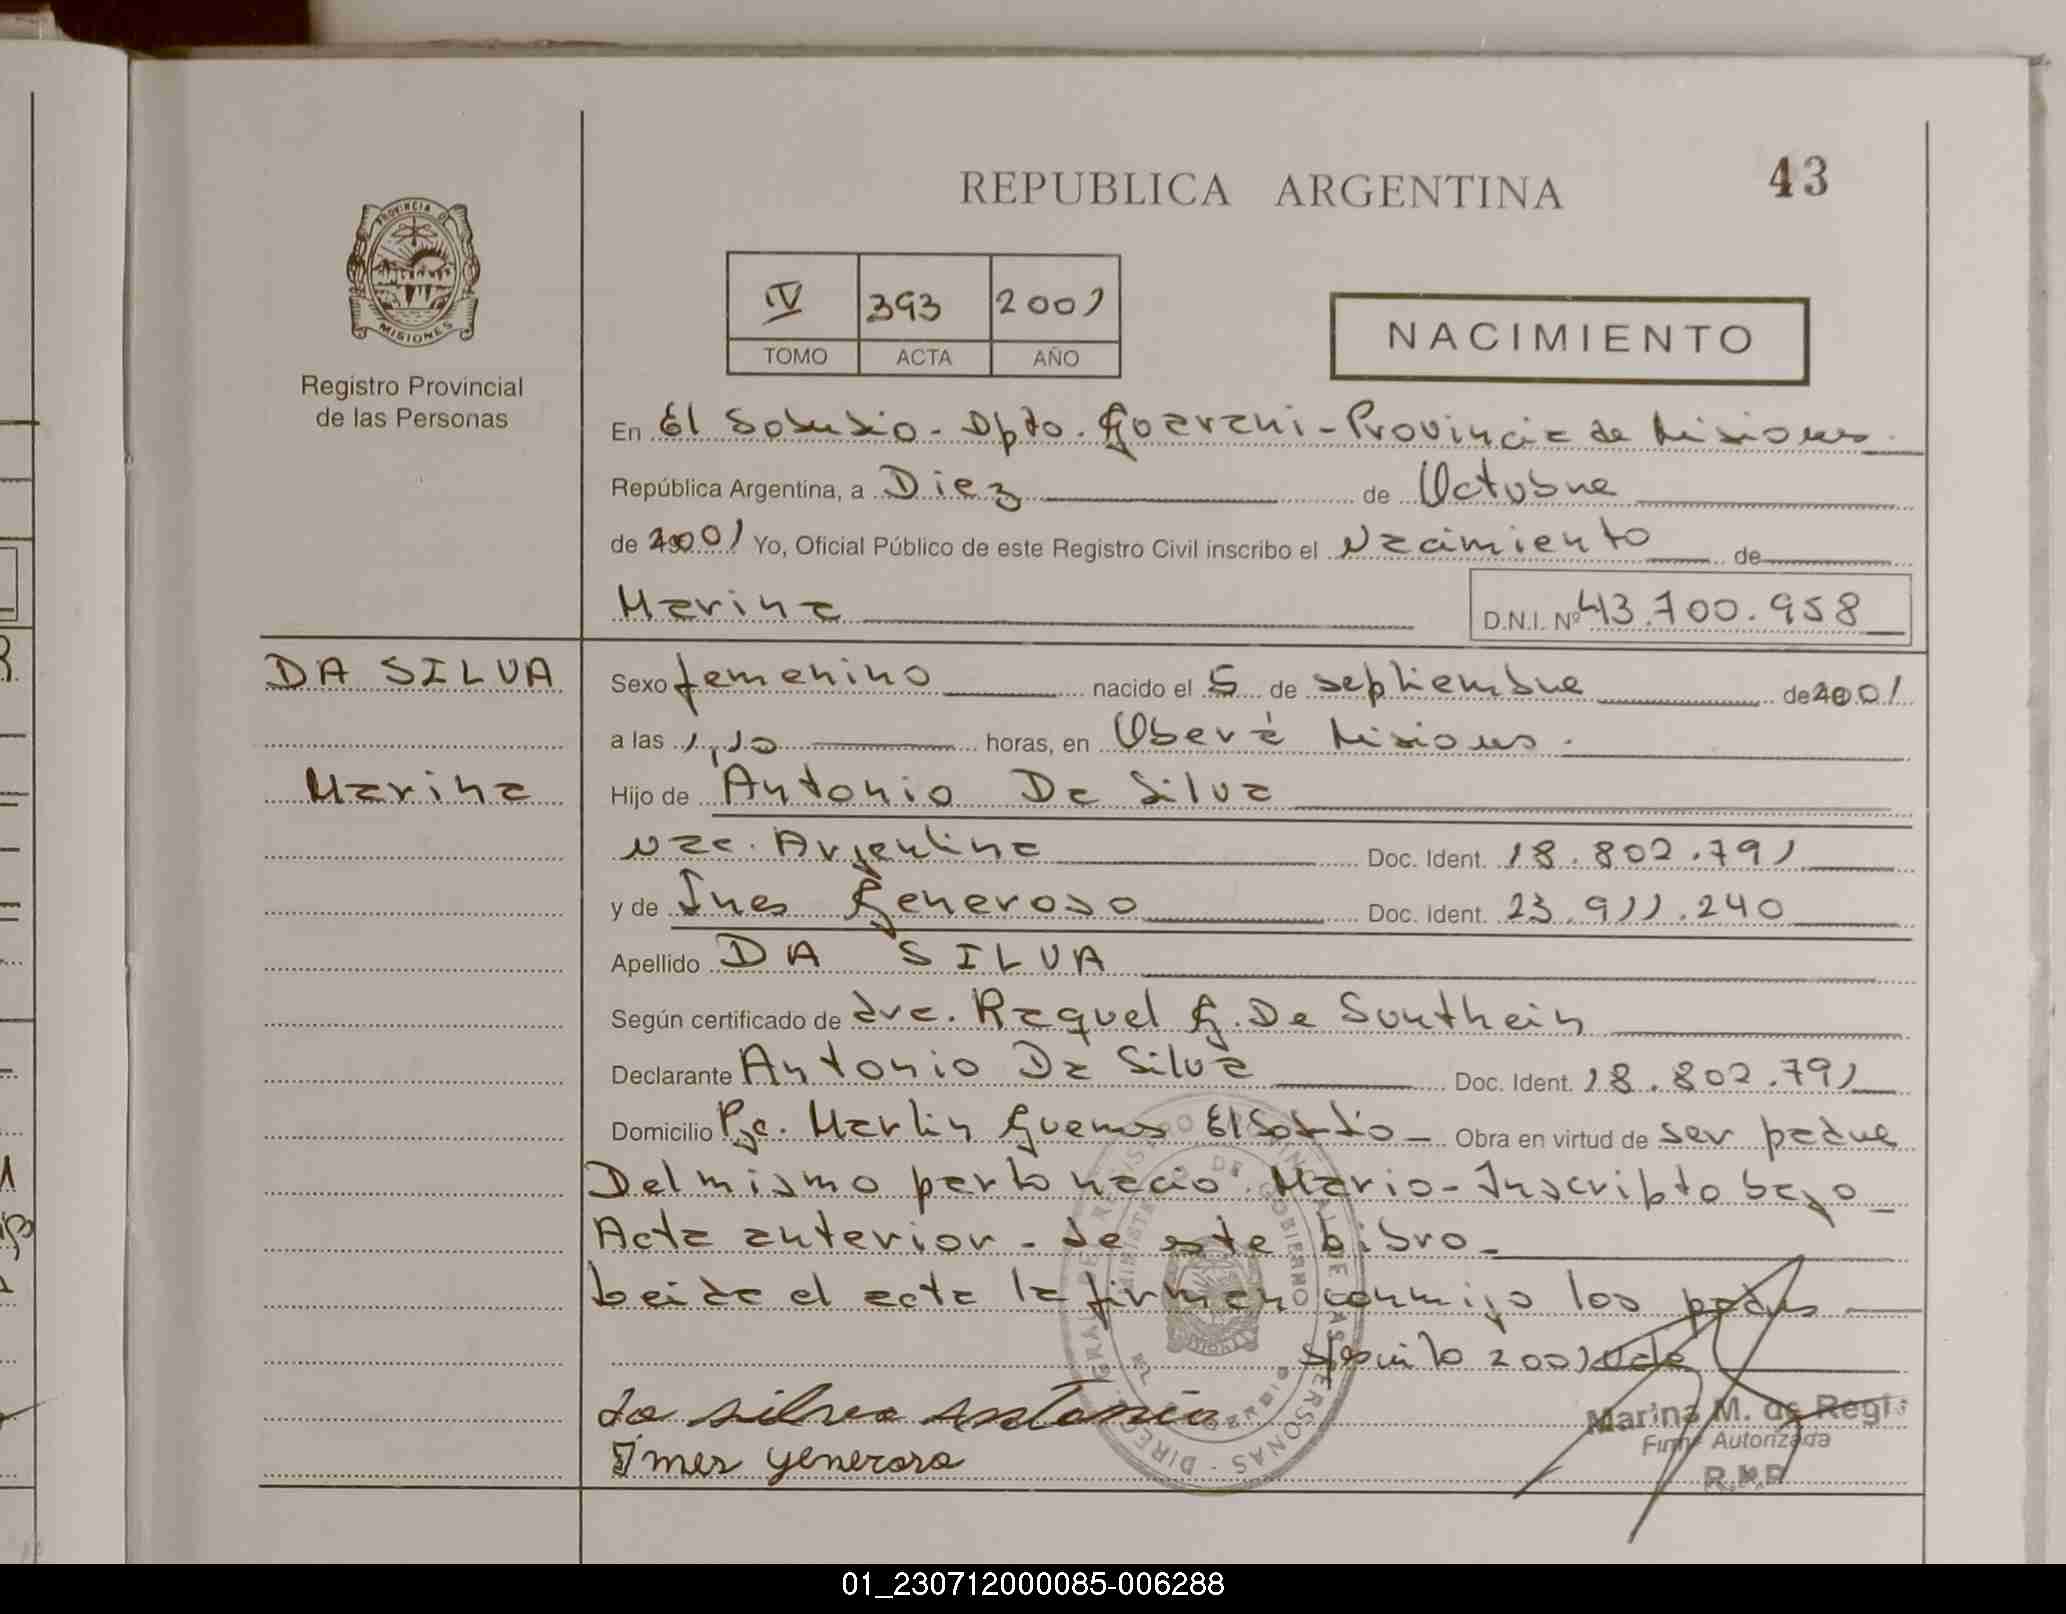 REPUBLICA ARGENTINA
43
PROVINCIA DE
MISIONES
Registro Provincial
de las Personas
IV 393 2001
TOMO ACTA AÑO
NACIMIENTO
En El Soberbio - Dpto. Guarani - Provincia de Misiones.
República Argentina, a Diez de Octubre
de 2001 Yo, Oficial Público de este Registro Civil inscribo el Nacimiento de
Marina D.N.I. Nº 43.700.958
DA SILVA
Marina
Sexo femenino nacido el 5 de septiembre de 2001
a las 1,10 horas, en Oberá Misiones.
Hijo de Antonio Da Silva
nac. Argentina Doc. Ident. 18.802.791
y de Ines Generoso Doc. Ident. 23.911.240
Apellido DA SILVA
Según certificado de dra. Raquel G. De Southein
Declarante Antonio Da Silva Doc. Ident. 18.802.791
Domicilio Pje. Martin Guemes El Soberbio - Obra en virtud de ser padre
Del mismo parto nacio: Mario - Inscripto bajo
Acta anterior - de este Libro -
Leida el acta la firman conmigo los padres
2001 Vale
da silva antonio
Ines generoso
Marina M. de Regi
Firma Autorizada
MINISTERIO DE GOBIERNO
01_230712000085-006288